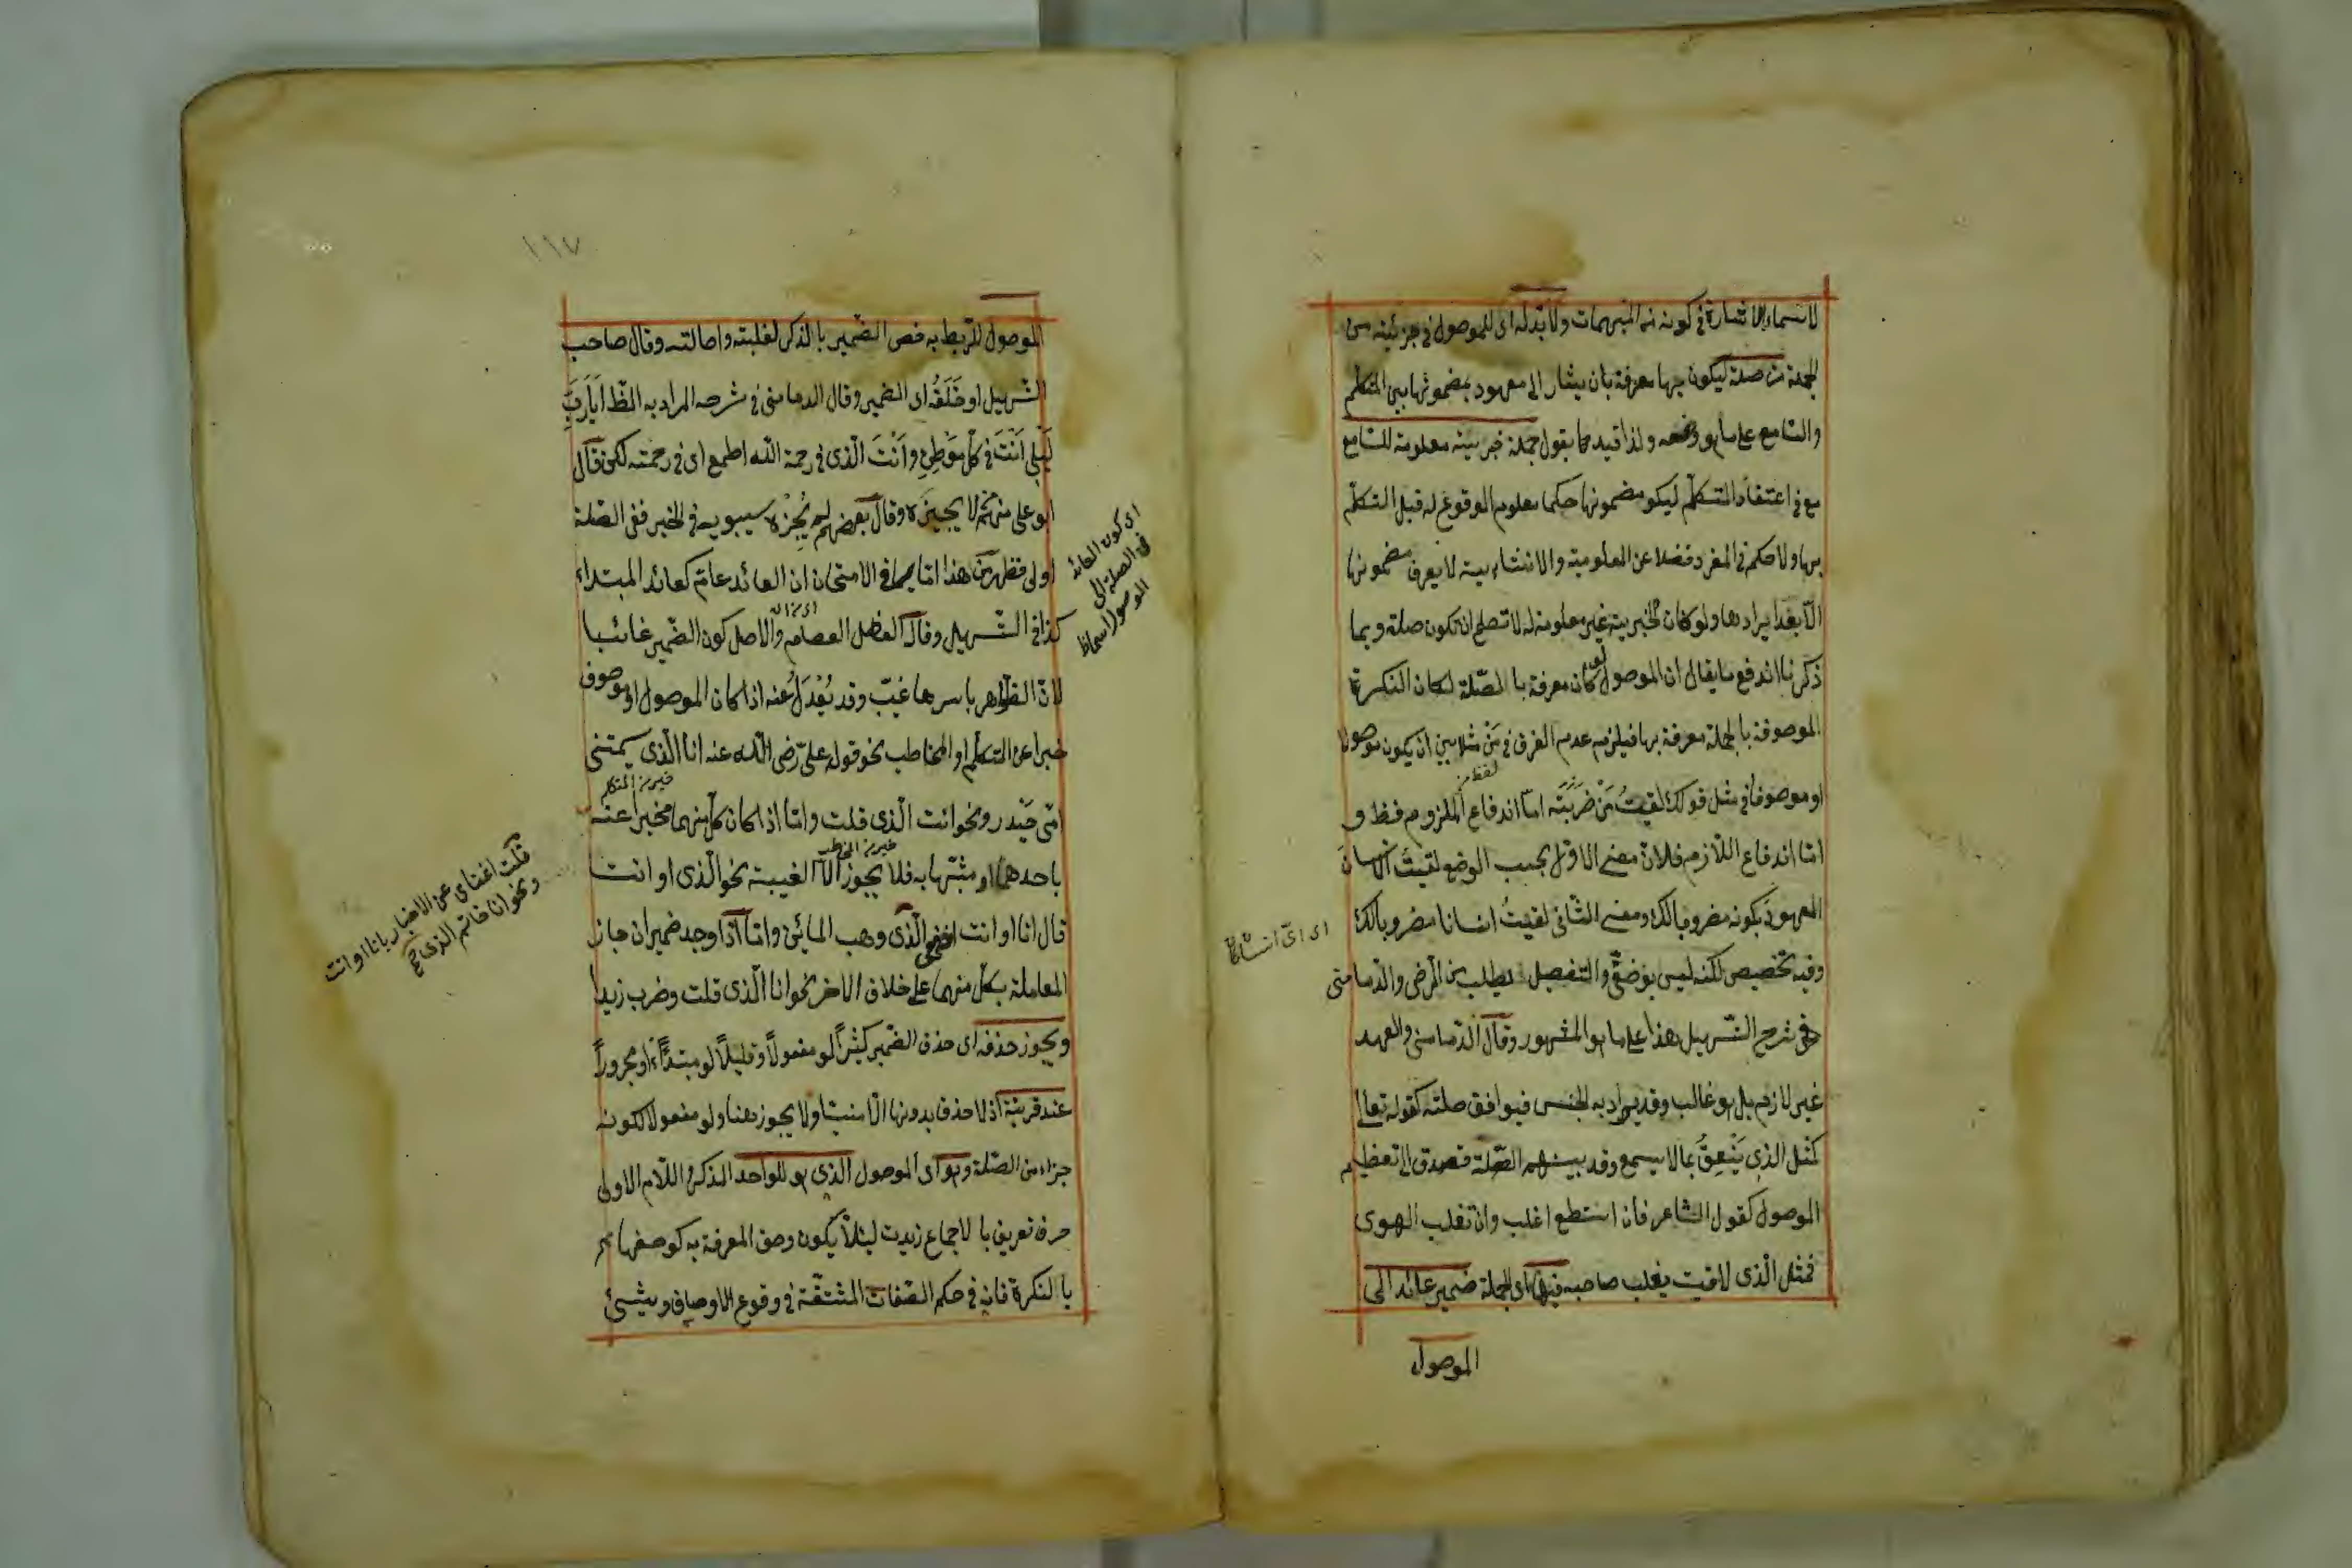 لاسماء الاشارة في كونه من المبهمات ولا بد له اى للموصول في جزئيته من
الجملة من صلة ليكون بها معرفة بان يشار الى معهود بمضمونها بين المتكلم
والسامع على ما هو وضعه ولذا قيدها بقول جملة خبريته معلومة للسامع
مع في اعتقاد المتكلّم ليكو مضمونها حكما معلوم الوقوع له قبل التكلّم
بها ولا حكم في المفرد فضلا عن المعلومية والانشاءيته لا يعرف مضمونها
الّا بعد ايرادها ولو كان الخبرية غير معلومة له لا تصلح ان تكون صلة وبما
ذكرنا اندفع ما يقال ان الموصول لو كان معرفة با لصّلة لكان النكرة
الموصوفة با لجملة معرفة بها فيلزم عدم الفرق في مَنْ مثلا بين ان يكون موصولا
او موصوفا في مثل قولك لقيتُ مَنْ ضَرَبْتَه امّا اندفاع الملزوم فظ و
امّا اندفاع اللّازم فلانّ معنى الاوّل بحسب الوضع لقيتُ الانسان
المعهودَ بكونه مضروبا لك ومعنى الثّاني لقيتُ انسانا مضروبا لك
اى اىّ انسان كان
وفيه تخصيص لكنه ليس بوضعىّ والتفصيل يطلب من الرّضى والدّمامنى
في شرح التّسهيل هذا على ما هو المشهور وقال الدّمامنى والعهد
غير لازم بل هو غالب وقد يراد به الجنس فيوافق صلته كقوله تعالى
كمثل الذى يَنْعِقُ بما لا يسمع وقد الصّلة فصدق الى تعظيم
الموصول كقول الشاعر فان استطع اغلب وان تغلب الهوى
فمثل الّذى لاقيت يغلب صاحبه فيها اى الجملة ضمير عائد الى
الموصول
١١٧
الموصول للرّبط به خص الضّمير بالذكر لغلبته واصالته وقال صاحب
التّسهيل او خَلَفُه اى الضمير وقال الدمامنى في شرحه المراد به الظّ اَيَا رَبَّ
لَيْلى اَنْتَ في كلّ مَوْطِنٍ وأَنْتَ الّذى في رحمة اللّه اطمع اى في رحمته لكن قال
ابو على منهم لا يجيزه وقال بعضهم لم يُجِزْه سيبويه في الخبر ففى الصّلة
اولى فظهر من هذا امّا في الامتحان ان العائد عامّ كعائد المبتداء
اى كون العائد
في الصلة الى
الموصول اسما ظ
كذا في التّسهيل وقال الفاضل العصام والاصل كون الضّمير غائبا
لانّ الظّواهر باسرها غيّب وقد يُعْدَلُ عنه اذا كان الموصول او موصوفه
خبرا عن المتكلّم او المخاطب نحو قوله علىّ رضى اللّه عنه انا الّذى سمتنى
خبر من المتكلم
امّى حَيْدر ونحو انت الّذى قلت وامّا اذا كان كلّ منهما مخبرا عنه
خبر من المخاطب
باحدهما او مشبّها به فلا يجوز الّا الغيبة نحو الّذى او انت
قلت اغنتاى عن الاخبار بانا او انت
ونحو انا حاتم الذى
قال انا او انت الّذى وهب المائين وامّا اذا وجد ضميران جاز
المعاملة بكلّ منهما على خلاف الاخر نحو انا الّذى قلت وضرب زيدا
ويجوز حذفه اى حذف الضّمير كثيراً لو مفعولاً وقليلاً لو مبتدأً او مجروراً
عند قرينة اذ لا حذف بدونها الّا منسّيا ولا يجوز هنا ولو مفعولا لكونه
جزاء من الصّلة وهو اى الموصول الذى هو للواحد المذكر اللّام الاولى
حرف تعريف با لاجماع زيدت لئلّا يكون وصف المعرفة به كوصفها
با لنكرة فانه في حكم الصّفات المشتقّة في وقوع الاوصاف وشيئ